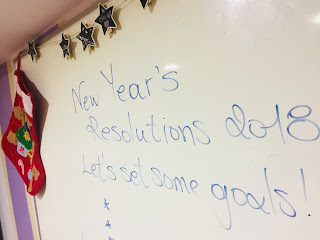 New Year's
Resolutions 2018
Let's set some goals!
*
*
*